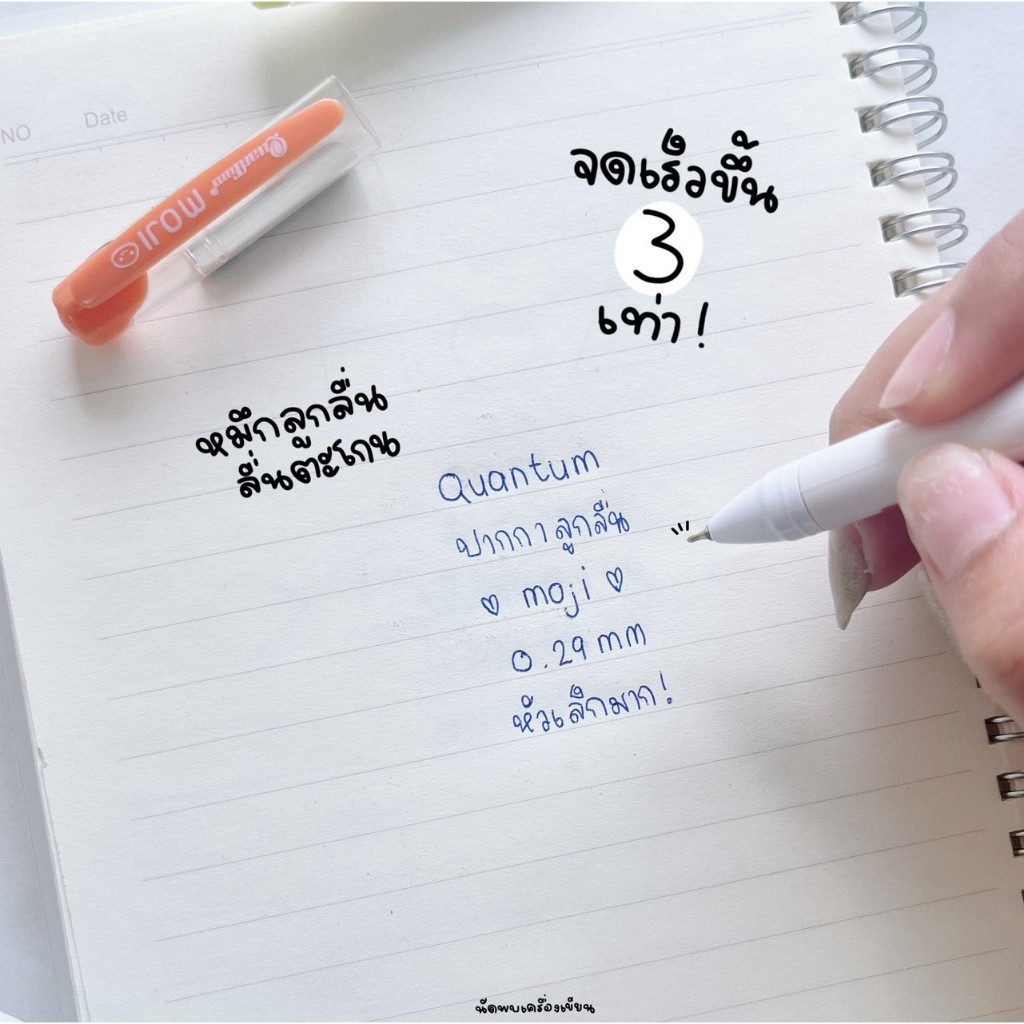 NO Date
Quantum MOJI
จดเร็วขึ้น
3
เท่า!
หมึกลูกลื่น
ลื่นตะโกน
Quantum
ปากกาลูกลื่น
♡ moji ♡
0.29 mm
หัวเล็กมาก!
นัดพบเครื่องเขียน